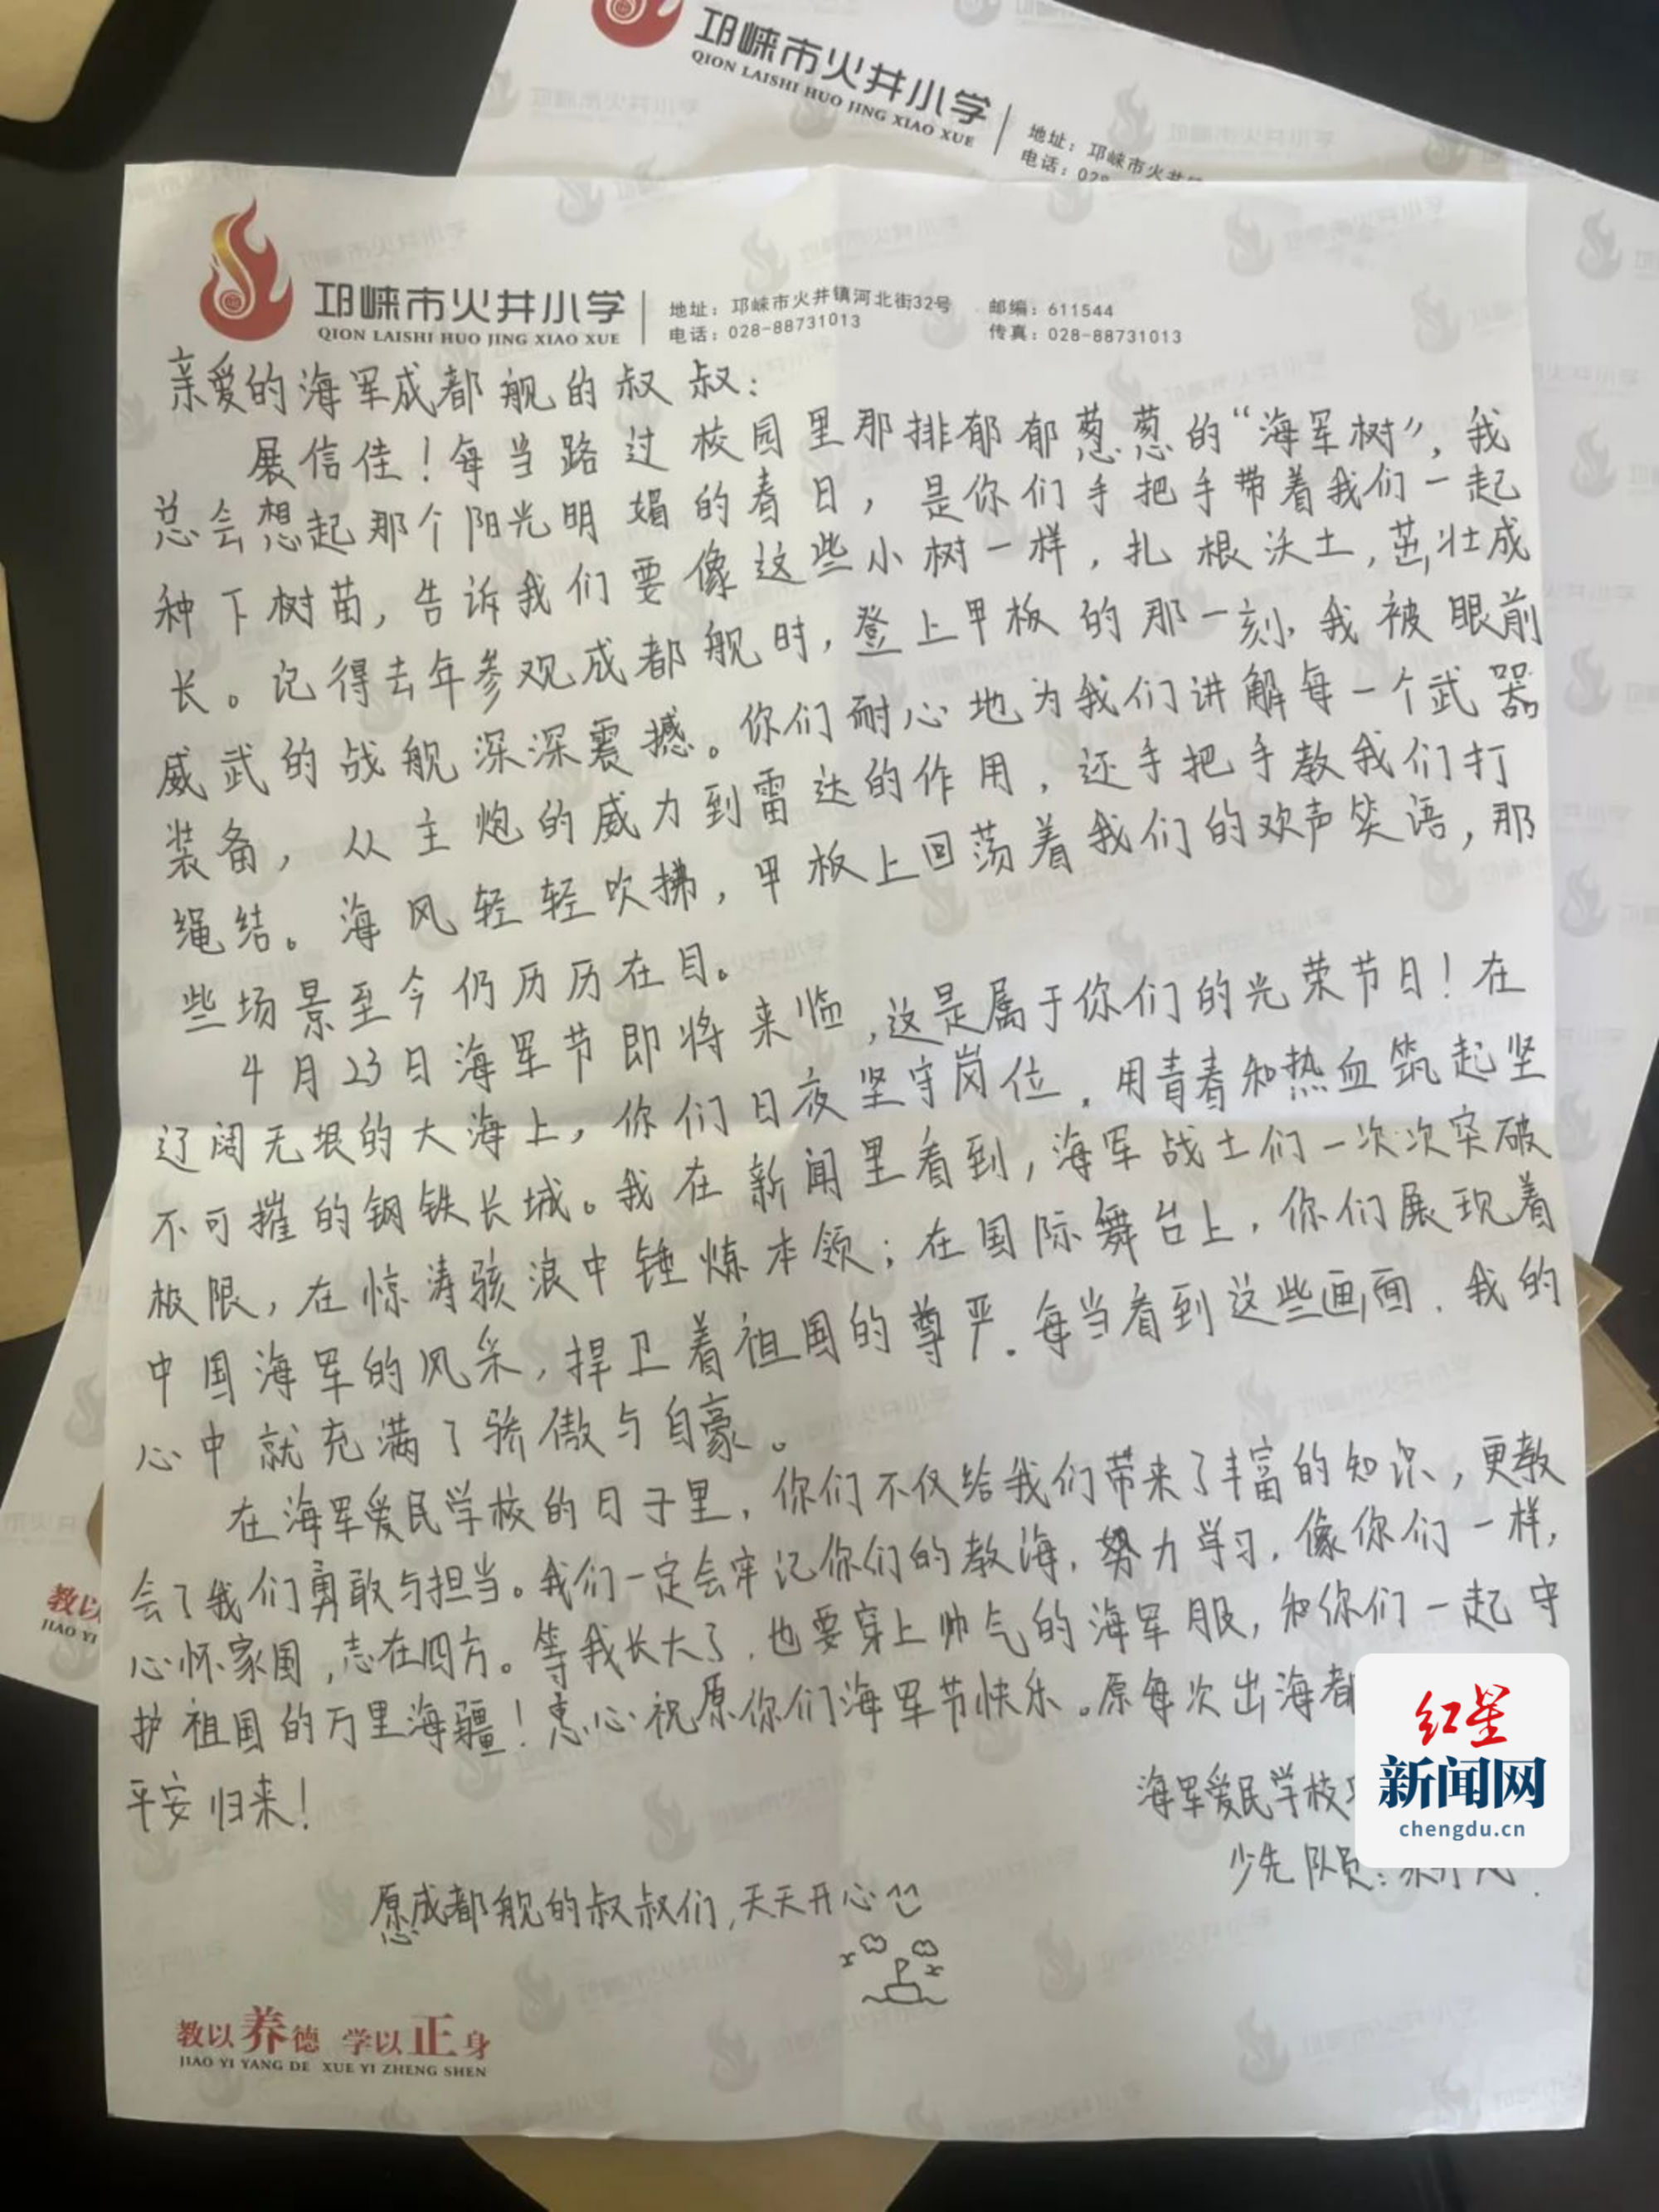 邛崃市火井小学
QION LAISHI HUO JING XIAO XUE
地址：邛崃市火井镇
电话：028
邛崃市火井小学
QION LAISHI HUO JING XIAO XUE
地址：邛崃市火井镇河北街32号 邮编：611544
电话：028-88731013 传真：028-88731013
亲爱的海军成都舰的叔叔：
展信佳！每当路过校园里那排郁郁葱葱的“海军树”，我
总会想起那个阳光明媚的春日，是你们手把手带着我们一起
种下树苗，告诉我们要像这些小树一样，扎根沃土，茁壮成
长。记得去年参观成都舰时，登上甲板的那一刻，我被眼前
威武的战舰深深震撼。你们耐心地为我们讲解每一个武器
装备，从主炮的威力到雷达的作用，还手把手教我们打
绳结。海风轻轻吹拂，甲板上回荡着我们的欢声笑语，那
些场景至今仍历历在目。
4月23日海军节即将来临，这是属于你们的光荣节日！在
辽阔无垠的大海上，你们日夜坚守岗位，用青春和热血筑起坚
不可摧的钢铁长城。我在新闻里看到，海军战士们一次次突破
极限，在惊涛骇浪中锤炼本领；在国际舞台上，你们展现着
中国海军的风采，捍卫着祖国的尊严。每当看到这些画面，我的
心中就充满了骄傲与自豪。
在海军爱民学校的日子里，你们不仅给我们带来了丰富的知识，更教
会了我们勇敢与担当。我们一定会牢记你们的教海，努力学习，像你们一样，
心怀家国，志在四方。等我长大了，也要穿上帅气的海军服，和你们一起守
护祖国的万里海疆！衷心祝原你们海军节快乐。原每次出海都
平安归来！
海军爱民学校
少先队员：
愿成都舰的叔叔们，天天开心
教以养德 学以正身
JIAO YI YANG DE XUE YI ZHENG SHEN
教以
JIAO YI
红星
新闻网
chengdu.cn